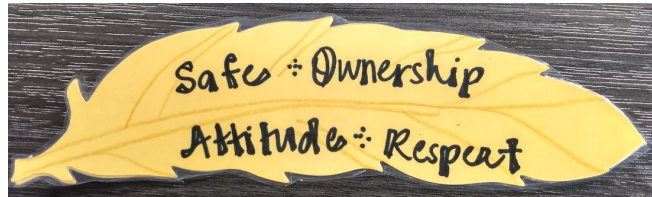 Safe ⁘ Ownership
Attitude ⁘ Respect